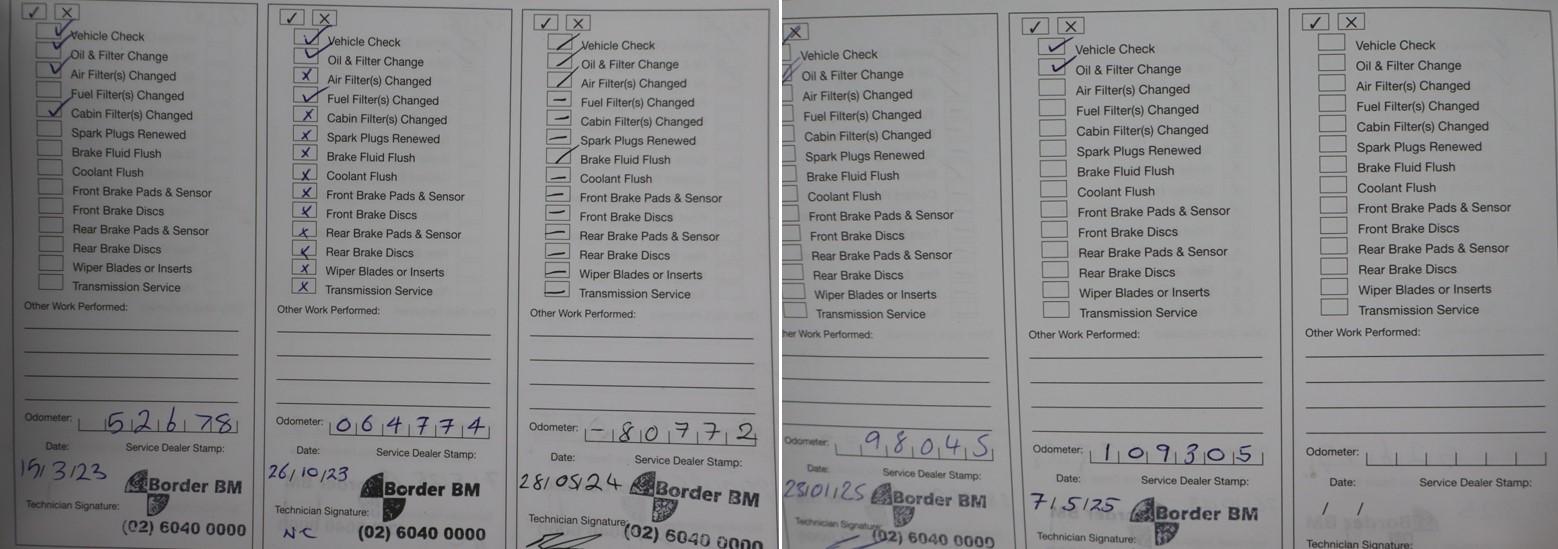 ✓ X
Vehicle Check
Oil & Filter Change
Air Filter(s) Changed
Fuel Filter(s) Changed
Cabin Filter(s) Changed
Spark Plugs Renewed
Brake Fluid Flush
Coolant Flush
Front Brake Pads & Sensor
Front Brake Discs
Rear Brake Pads & Sensor
Rear Brake Discs
Wiper Blades or Inserts
Transmission Service
Other Work Performed:
Odometer: 52678
Date: Service Dealer Stamp:
15/3/23 Border BM
Technician Signature:
(02) 6040 0000
✓ X
Vehicle Check
Oil & Filter Change
X Air Filter(s) Changed
Fuel Filter(s) Changed
X Cabin Filter(s) Changed
X Spark Plugs Renewed
X Brake Fluid Flush
X Coolant Flush
X Front Brake Pads & Sensor
X Front Brake Discs
X Rear Brake Pads & Sensor
X Rear Brake Discs
X Wiper Blades or Inserts
X Transmission Service
Other Work Performed:
Odometer: 064774
Date: Service Dealer Stamp:
26/10/23 Border BM
Technician Signature:
NC (02) 6040 0000
✓ X
Vehicle Check
Oil & Filter Change
Air Filter(s) Changed
Fuel Filter(s) Changed
Cabin Filter(s) Changed
Spark Plugs Renewed
Brake Fluid Flush
Coolant Flush
Front Brake Pads & Sensor
Front Brake Discs
Rear Brake Pads & Sensor
Rear Brake Discs
Wiper Blades or Inserts
Transmission Service
Other Work Performed:
Odometer: -80772
Date: Service Dealer Stamp:
28/05/24 Border BM
Technician Signature:
(02) 6040 0000
X
Vehicle Check
Oil & Filter Change
Air Filter(s) Changed
Fuel Filter(s) Changed
Cabin Filter(s) Changed
Spark Plugs Renewed
Brake Fluid Flush
Coolant Flush
Front Brake Pads & Sensor
Front Brake Discs
Rear Brake Pads & Sensor
Rear Brake Discs
Wiper Blades or Inserts
Transmission Service
her Work Performed:
Odometer: 98045
Date: Service Dealer Stamp:
23/01/25 Border BM
Technician Signature:
(02) 6040 0000
✓ X
Vehicle Check
Oil & Filter Change
Air Filter(s) Changed
Fuel Filter(s) Changed
Cabin Filter(s) Changed
Spark Plugs Renewed
Brake Fluid Flush
Coolant Flush
Front Brake Pads & Sensor
Front Brake Discs
Rear Brake Pads & Sensor
Rear Brake Discs
Wiper Blades or Inserts
Transmission Service
Other Work Performed:
Odometer: 109305
Date: Service Dealer Stamp:
7/5/25 Border BM
Technician Signature:
✓ X
Vehicle Check
Oil & Filter Change
Air Filter(s) Changed
Fuel Filter(s) Changed
Cabin Filter(s) Changed
Spark Plugs Renewed
Brake Fluid Flush
Coolant Flush
Front Brake Pads & Sensor
Front Brake Discs
Rear Brake Pads & Sensor
Rear Brake Discs
Wiper Blades or Inserts
Transmission Service
Other Work Performed:
Odometer:
Date: Service Dealer Stamp:
/ /
Technician Signature: